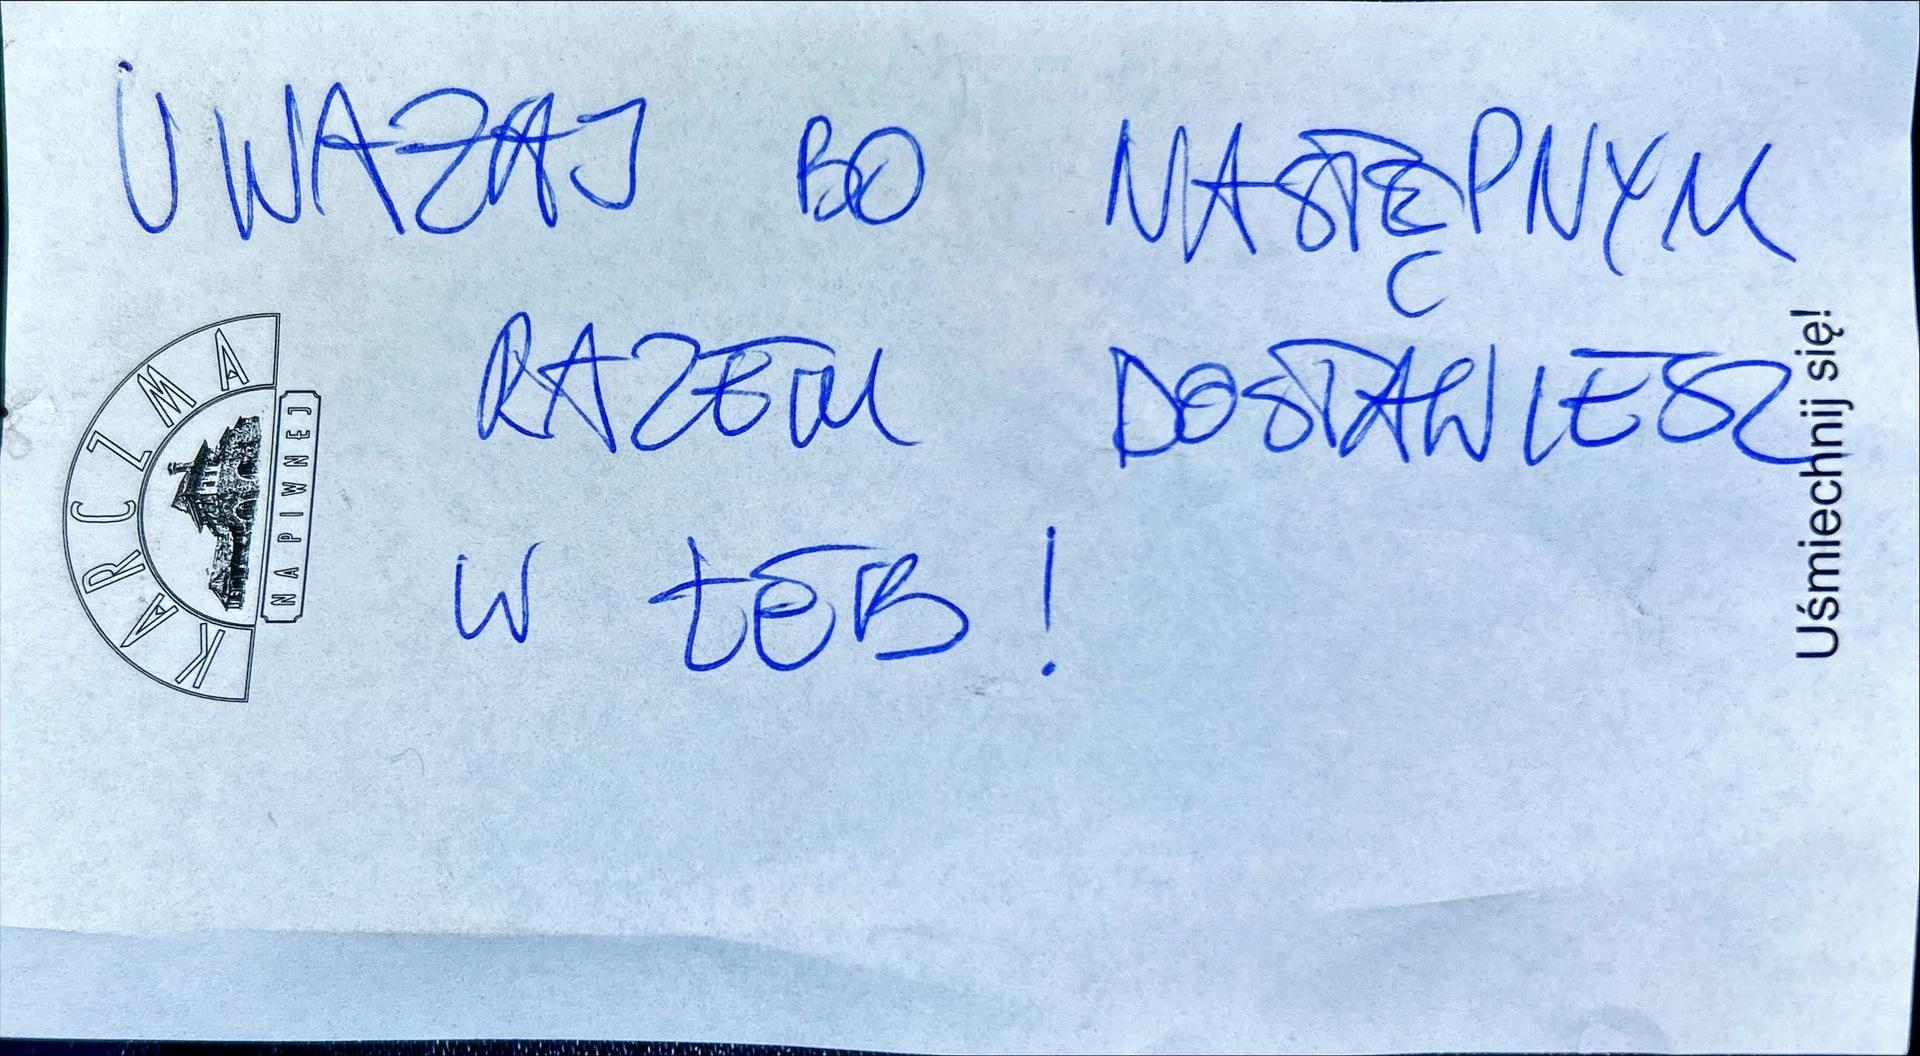 UWAŻAJ BO NASTĘPNYM
RAZEM DOSTAWIESZ
W ŁEB!
KARCZMA
NA PIWNEJ
Uśmiechnij się!